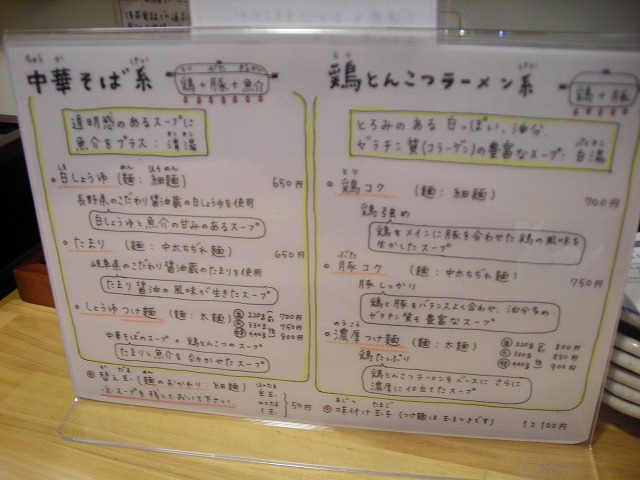 ちゅうか けい
中華そば系
とり ぶた ぎょかい
鶏+豚+魚介
透明感のあるスープに
魚介をプラス:清湯
チンタン
しろ めん ほそめん
白しょうゆ(麺:細麺) 650円
長野県のこだわり醤油蔵の白しょうゆを使用
白しょうゆと魚介の甘みのあるスープ
たまり(麺:中太ちぢれ麺) 650円
岐阜県のこだわり醤油蔵のたまりを使用
たまり醤油の風味が生きたスープ
しょうゆつけ麺(麺:太麺) 220g 700円
330g 750円
440g 800円
中華そばのスープ+鶏とんこつのスープ
たまりと魚介を合わせたスープ
か だま
替え玉(麺のおかわり:細麺)
※スープを残しておいて下さい。
半玉
1玉
50円
とり けい
鶏とんこつラーメン系
鶏+豚
とろみのある白っぽい、油分、
ゼラチン質(コラーゲン)の豊富なスープ:白湯
パイタン
とり
鶏コク(麺:細麺) 700円
鶏強め
鶏をメインに豚を合わせた鶏の風味を
生かしたスープ
ぶた
豚コク(麺:中太ちぢれ麺) 750円
豚しっかり
鶏と豚をバランスよく合わせ、油分多め
ゼラチン質も豊富なスープ
のうこう
濃厚つけ麺(麺:太麺) 220g 800円
330g 850円
440g 900円
鶏たっぷり
鶏とんこつラーメンをベースにさらに
濃厚に仕立てたスープ
あじつ たまご
味付け玉子(つけ麺は玉子つきです) 1コ100円